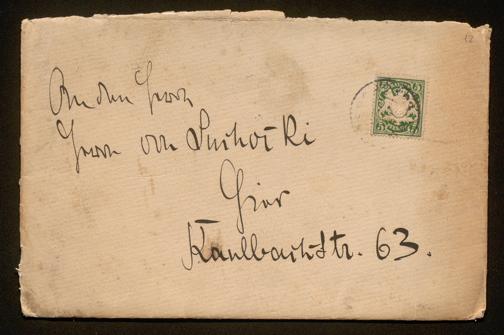 An den Herrn
Herrn von Suchocki
Hier
Kaulbachstr. 63.
5 5
12